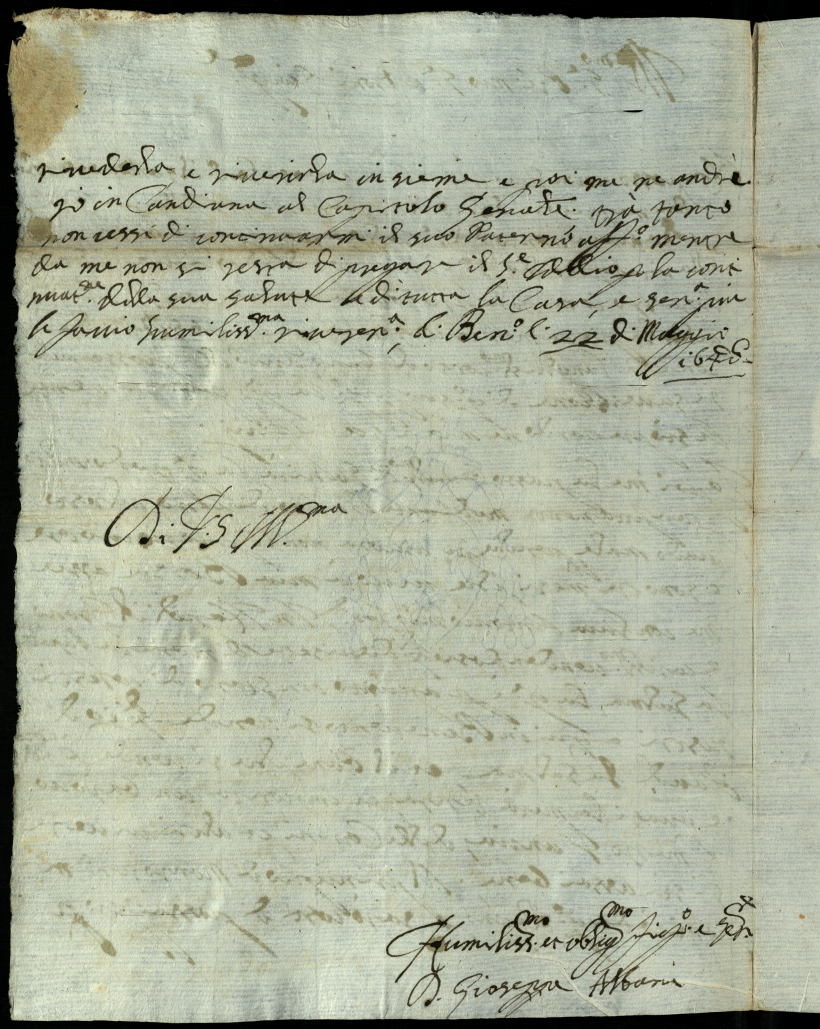 rivederla e riverirla insieme e poi me ne andrè
rò in Candiana al Capitolo Genãle. trà tanto
non cessi di continuarmi il suo Paterno aff.o mentre
da me non si cessa di pregare il S.e Iddio p la cont
nuat.ne della sua salute e di tutta la Casa, e
le faccio humiliss.ma riveren.a, di 22 di Maggio
Di V.S. Ill.ma
Humiliss.mo et oblig.mo figlo e
D. Gioseppe Albani